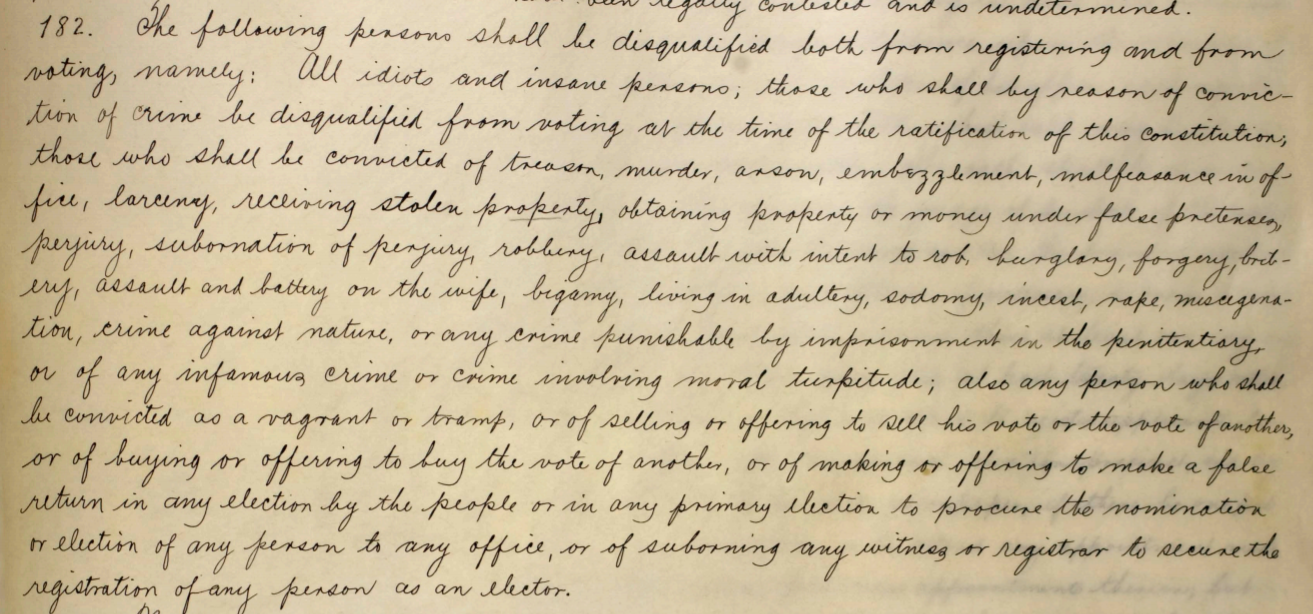 been legally contested and is undetermined.
182. The following persons shall be disqualified both from registering and from
voting, namely: All idiots and insane persons; those who shall by reason of convic-
tion of crime be disqualified from voting at the time of the ratification of this constitution;
those who shall be convicted of treason, murder, arson, embezzlement, malfeasance in of-
fice, larceny, receiving stolen property, obtaining property or money under false pretenses,
perjury, subornation of perjury, robbery, assault with intent to rob, burglary, forgery, brib-
ery, assault and battery on the wife, bigamy, living in adultery, sodomy, incest, rape, miscegena-
tion, crime against nature, or any crime punishable by imprisonment in the penitentiary,
or of any infamous crime or crime involving moral turpitude; also any person who shall
be convicted as a vagrant or tramp, or of selling or offering to sell his vote or the vote of another,
or of buying or offering to buy the vote of another, or of making or offering to make a false
return in any election by the people or in any primary election to procure the nomination
or election of any person to any office, or of suborning any witness or registrar to secure the
registration of any person as an elector.